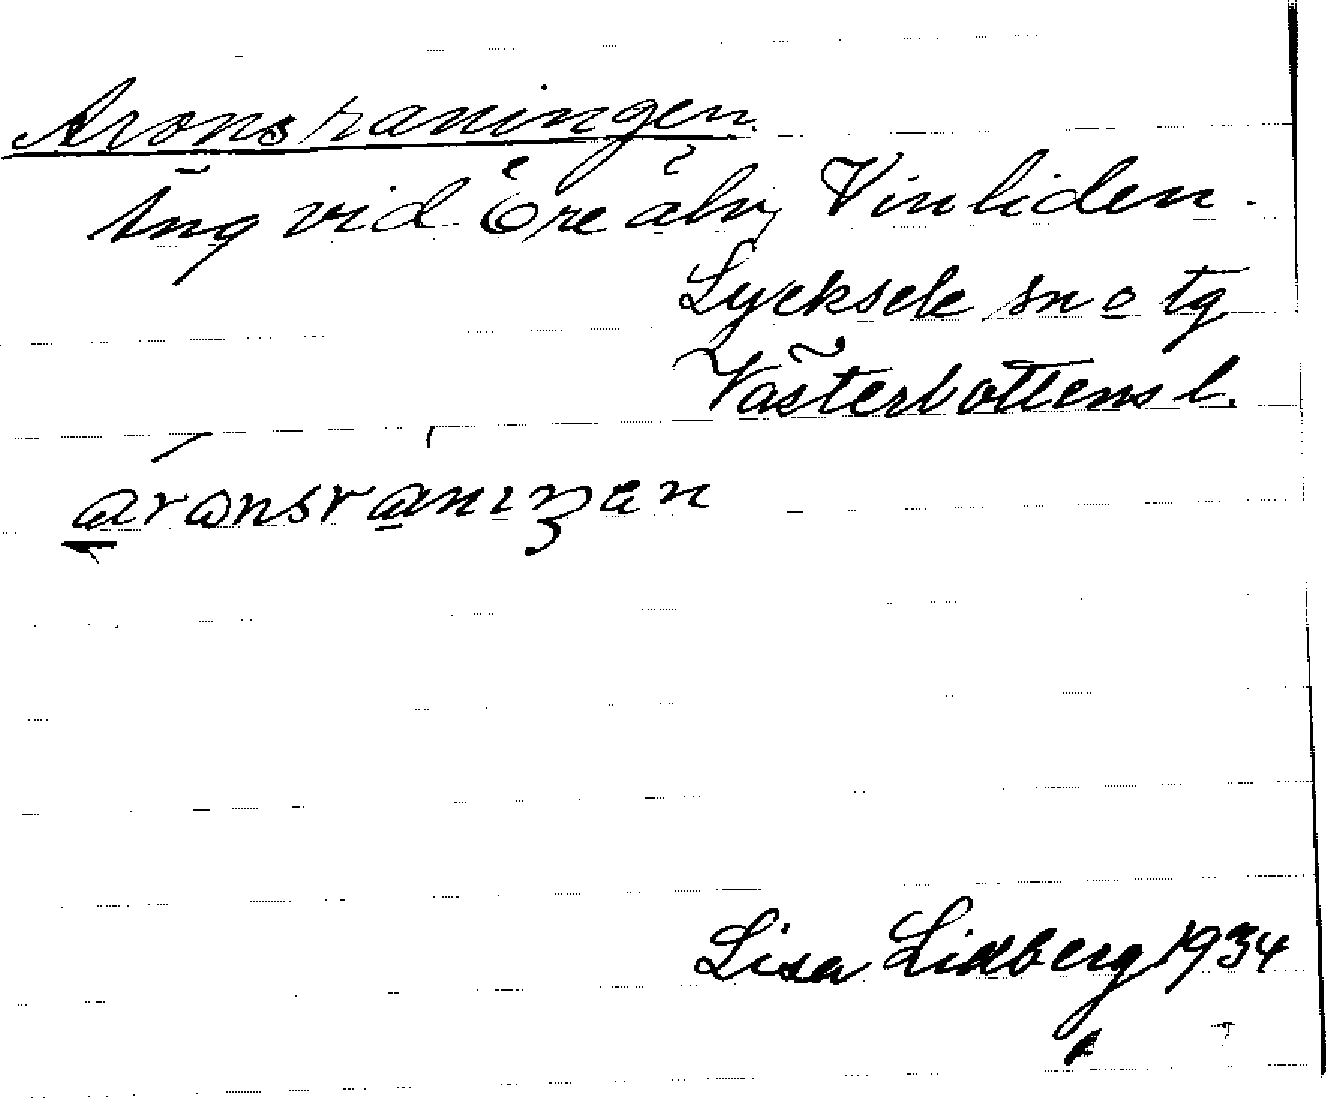 Aronsraningen.
Äng vid Öre älv, Vinliden.
Lycksele sn o tg
Västerbottens l.
aronsranıŋen
Lisa Lidberg 1934